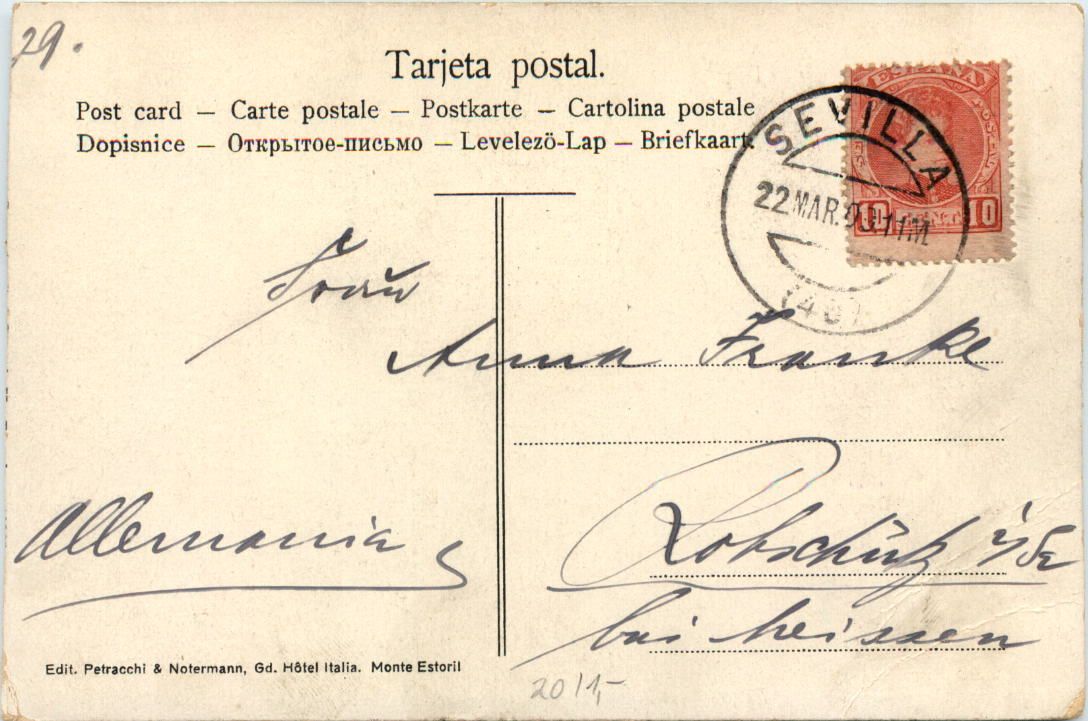 29.
Tarjeta postal.
Post card — Carte postale — Postkarte — Cartolina postale
Dopisnice — Открытое-письмо — Levelező-Lap — Briefkaart
ESPAÑA
10 10
SEVILLA
22 MAR. 11M
(40)
Frau
Anna Franke
Allemania
Robschütz
bei Meissen
Edit. Petracchi & Notermann, Gd. Hôtel Italia. Monte Estoril
20/1,-